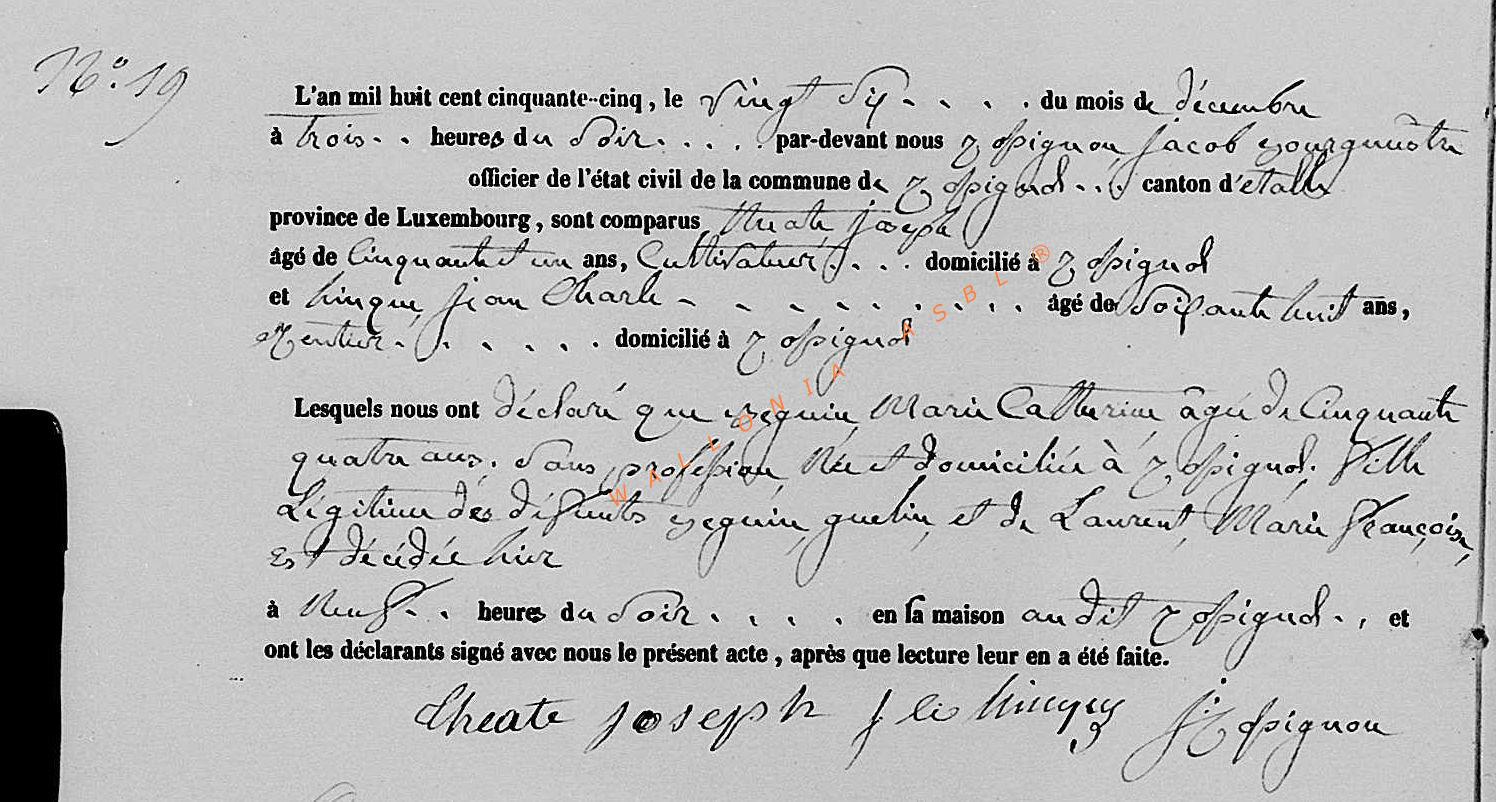 N° 19
L'an mil huit cent cinquante-cinq, le vingt six du mois de décembre
à trois heures du soir par-devant nous Rossignon Jacob Bourgumêtre
officier de l'état civil de la commune de Rossignol canton d'etalle
province de Luxembourg, sont comparus Theate Joseph
âgé de Cinquante et un ans, Cultivateur domicilié à Rossignol
et hinque jean Charle âgé de Soixante huit ans,
Rentier domicilié à Rossignol
Lesquels nous ont déclaré que Marie Catherine âgée de Cinquante
quatre ans, Sans profession, Née et domiciliée à Rossignol. fille
Légitime des défunts et de Laurent, Marie françoise,
Est décédée hier
à Neuf heures du Soir en sa maison audit Rossignol, et
ont les déclarants signé avec nous le présent acte, après que lecture leur en a été faite.
theate joseph Rossignon
WALLONIA ASBL ®